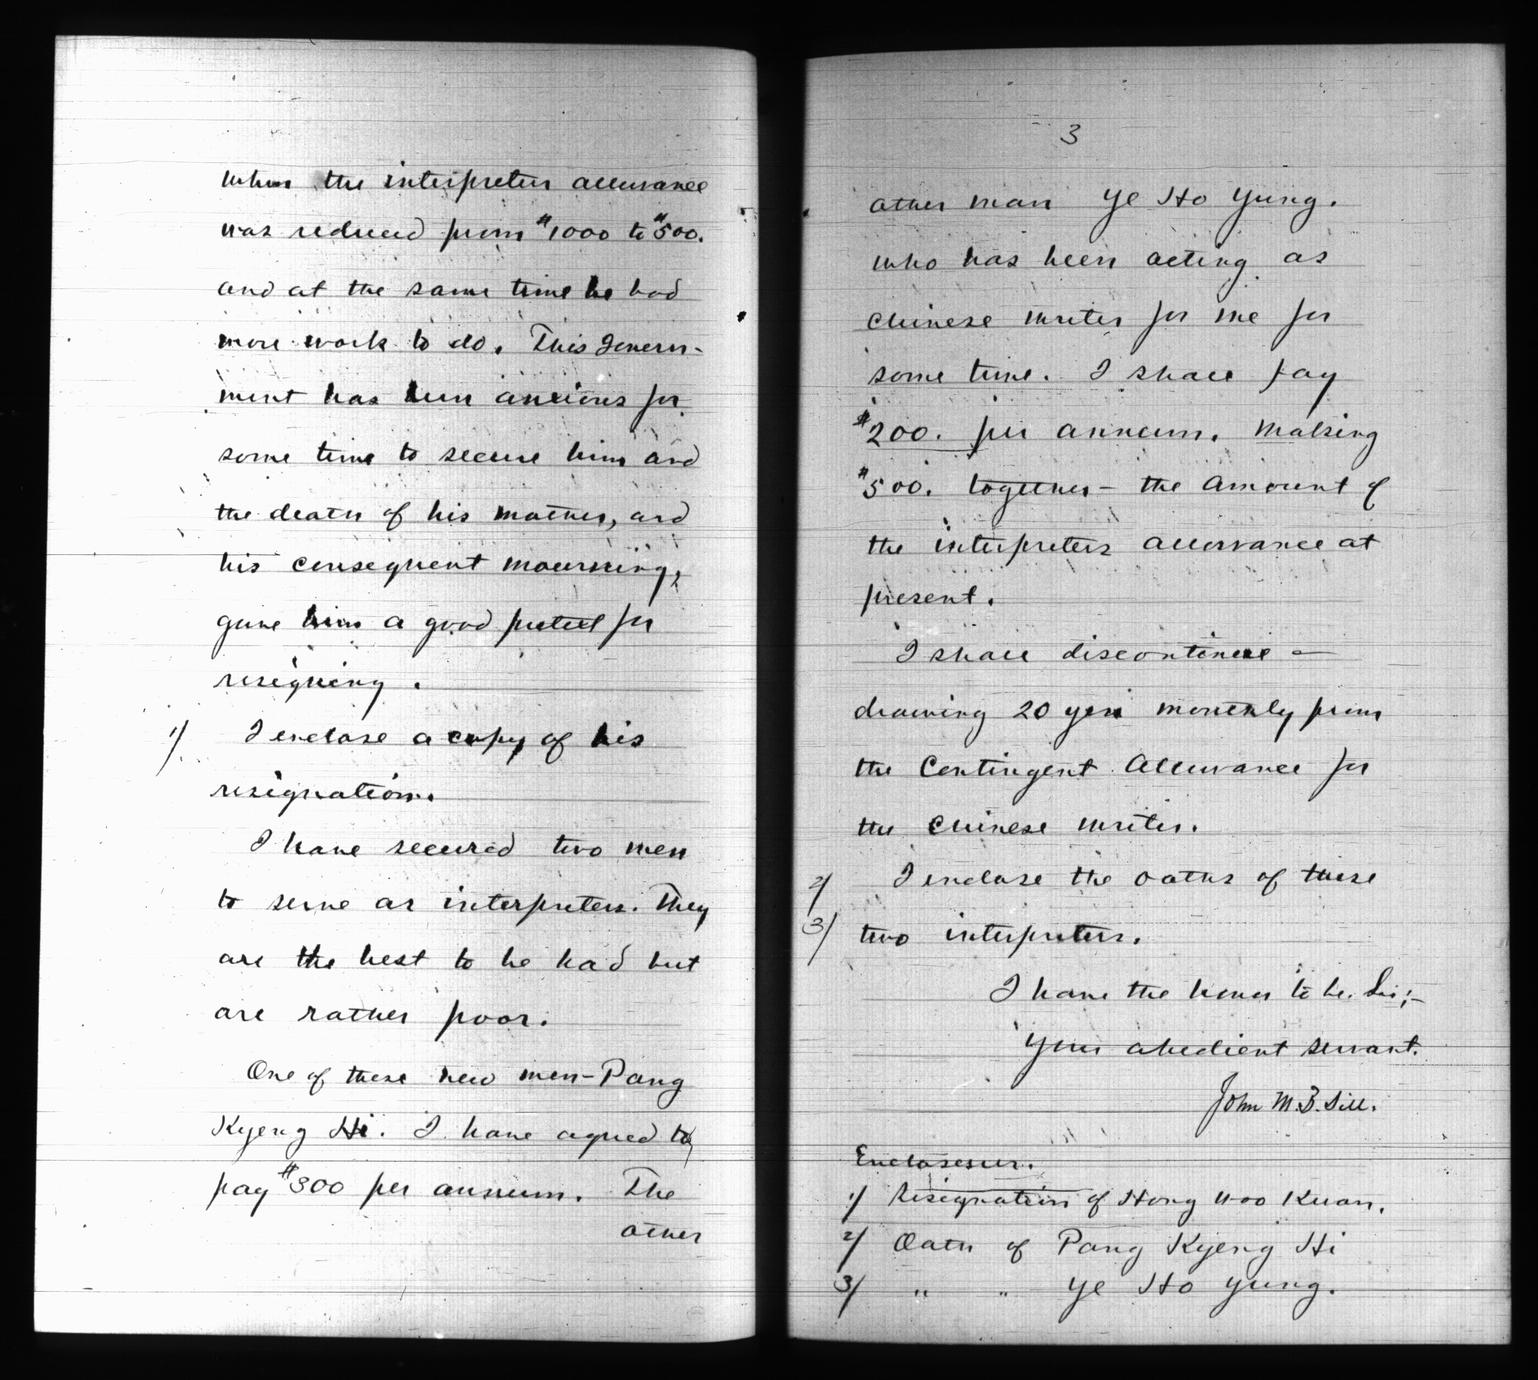 when the interpreters allowance
was reduced from $1000 to $500.
and at the same time he had
more work to do. This Govern-
ment has been anxious for
some time to secure him and
the death of his mother, and
his consequent mourning,
gave him a good pretext for
resigning.
1/ I enclose a copy of his
resignation.
I have secured two men
to serve as interpreters. They
are the best to be had but
are rather poor.
One of these new men - Pang
Kyeng Hi. I have agreed to
pay $300 per annum. The
other
3
other man Ye Ho Yung.
who has been acting as
Chinese writer for me for
some time. I shall pay
$200. per annum. Making
$500. together - the amount of
the interpreters allowance at
present.
I shall discontinue -
drawing 20 yen monthly from
the Contingent Allowance for
the Chinese writer.
2/ I enclose the oaths of these
3/ two interpreters.
I have the honor to be. Sir;-
Your obedient servant.
John M. B. Sill.
Enclosures.
1/ Resignation of Hong Woo Kuan.
2/ Oath of Pang Kyeng Hi
3/ " " Ye Ho Yung.